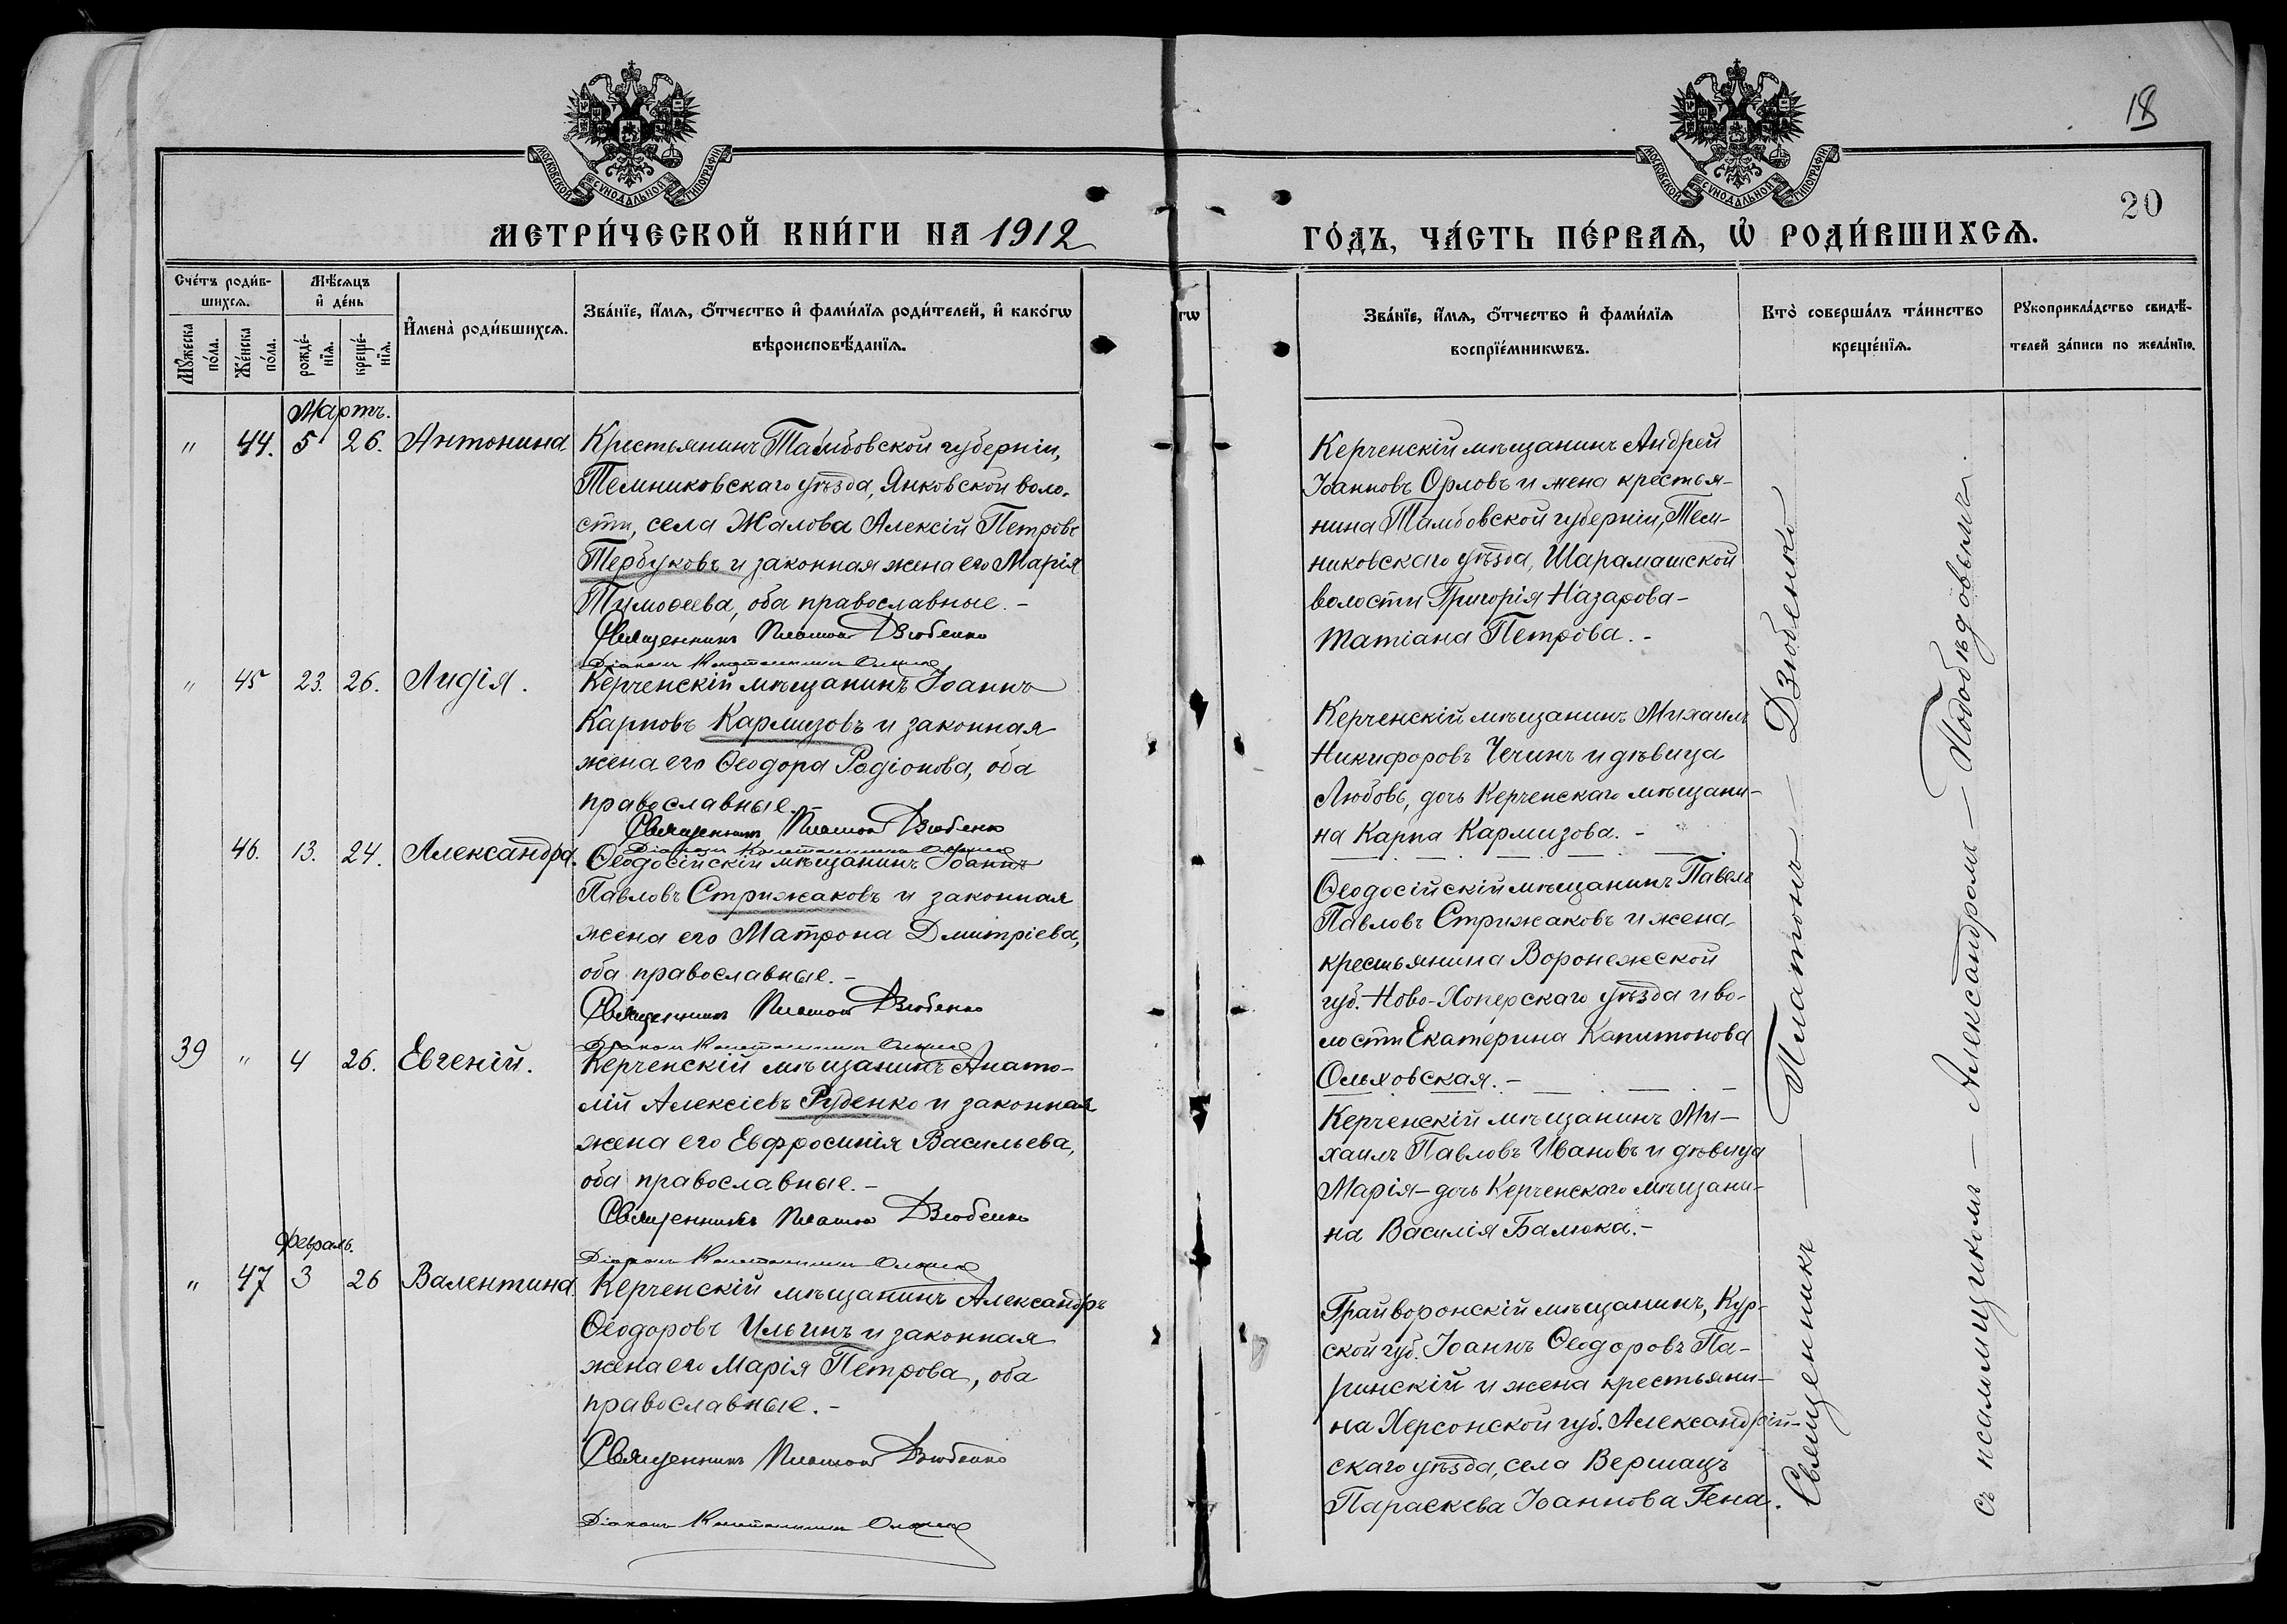 18
20
МОСКОВСКОЙ СѴНОДАЛЬНОЙ ТИПОГРАФІИ
МОСКОВСКОЙ СѴНОДАЛЬНОЙ ТИПОГРАФІИ
МЕТРИ́ЧЕСКОЙ КНИ́ГИ НА 1912
ГО́ДЪ, ЧА́СТЬ ПЕ́РВАЯ, Ѡ҆ РОДИ́ВШИХСЯ.
Сче́тъ роди́в-
шихся.
Мѣ́сяцъ
и҆ де́нь
Мꙋ́жеска
по́ла.
Же́нска
по́ла.
рожде́-
нїя.
креще́-
нїя.
И҆мена̀ роди́вшихся.
Зва́нїе, и҆́мя, о҆́тчество и҆ фами́лїя роди́телей, и҆ како́гѡ
вѣроисповѣ́данїя.
гѡ
Зва́нїе, и҆́мя, о҆́тчество и҆ фами́лїя
воспрїе́мникѡвъ.
Кто̀ соверша́лъ та́инство
креще́нїя.
Рꙋкоприкла́дство свидѣ́-
телей за́писи по жела́нїю.
Мартъ.
" 44. 5 26. Антонина
Крестьянинъ Тамбовской губерніи,
Темниковскаго уѣзда, Янковской воло-
сти, села Жалова Алексій Петровъ
Тербуковъ и законная жена его Марія
Тимоѳеева, оба православные. -
Священникъ Платонъ Дзюбенко
Діаконъ Константинъ
Керченскій мѣщанинъ Андрей
Іоанновъ Орловъ и жена крестья-
нина Тамбовской губерніи, Тем-
никовскаго уѣзда, Шарамашской
волости Григорія Назарова -
Татіана Петрова. -
" 45 23. 26. Лидія.
Керченскій мѣщанинъ Іоаннъ
Карповъ Кармизовъ и законная
жена его Ѳеодора Родіонова, оба
православные. -
Священникъ Платонъ Дзюбенко
Діаконъ Константинъ
Керченскій мѣщанинъ Михаилъ
Никифоровъ Чечинъ и дѣвица
Любовь, дочь Керченскаго мѣщани-
на Карпа Кармизова. -
46. 13. 24. Александра.
Ѳеодосійскій мѣщанинъ Іоаннъ
Павловъ Стрижаковъ и законная
жена его Матрона Дмитріева,
оба православные. -
Священникъ Платонъ Дзюбенко
Діаконъ Константинъ
Ѳеодосійскій мѣщанинъ Павелъ
Павловъ Стрижаковъ и жена
крестьянина Воронежской
губ. Ново-Хоперскаго уѣзда и во-
лости Екатерина Капитонова
Ольховская. -
39 " 4 26. Евгеній.
Керченскій мѣщанинъ Анато-
лій Алексіевъ Руденко и законная
жена его Евфросинія Васильева,
оба православные. -
Священникъ Платонъ Дзюбенко
Діаконъ Константинъ
Керченскій мѣщанинъ Ми-
хаилъ Павловъ Ивановъ и дѣвица
Марія - дочь Керченскаго мѣщани-
на Василія Балюка. -
Февраль.
" 47 3 26 Валентина.
Керченскій мѣщанинъ Александръ
Ѳеодоровъ Ильинъ и законная
жена его Марія Петрова, оба
православные. -
Священникъ Платонъ Дзюбенко
Діаконъ Константинъ
Грайворонскій мѣщанинъ, Кур-
ской губ. Іоаннъ Ѳеодоровъ Па-
ринскій и жена крестьяни-
на Херсонской губ. Александрій-
скаго уѣзда, села Вершацъ
Параскева Іоаннова Гена.
Священникъ - Платонъ - Дзюбенко
съ псаломщикомъ - Александромъ - Подобѣдовымъ.